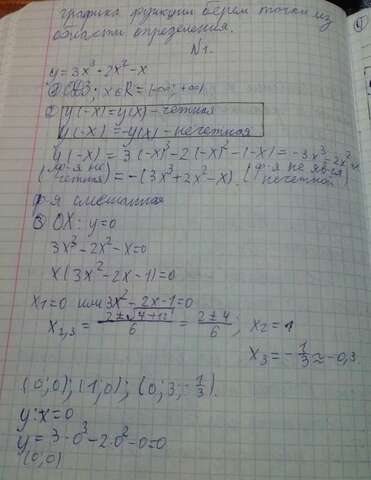 графика функции берем точки из
области определения.
N1.
y=3x³-2x²-x
① ОУЗ; x∈R=(-∞; +∞)
② y(-x)=y(x)-четная
y(-x)=-y(x)-нечетная
y(-x)=3(-x)³-2(-x)²-(-x)=-3x³-2x²+x
(ф-я не четная) =-(3x³+2x²-x). (ф-я не явл-ся нечетной)
ф-я смешанная
③ OX: y=0
3x³-2x²-x=0
x(3x²-2x-1)=0
x₁=0 или 3x²-2x-1=0
x₂,₃ = (2±√4+12)/6 = (2±4)/6; x₂=1
x₃=-1/3≈-0,3
(0;0); (1;0); (0;3;-1/3).
y: x=0
y=3·0³-2·0²-0=0
(0;0)